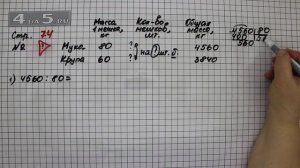 4 на 5.ru
Стр. 74
Масса 1 мешка, кг
Кол-во мешков, шт.
Общая масса, кг
№ 8
Мука 80 ? 4560
на ? шт. б.
Крупа 60 ? 3840
1) 4560 : 80 =
4560 80
400 57
560